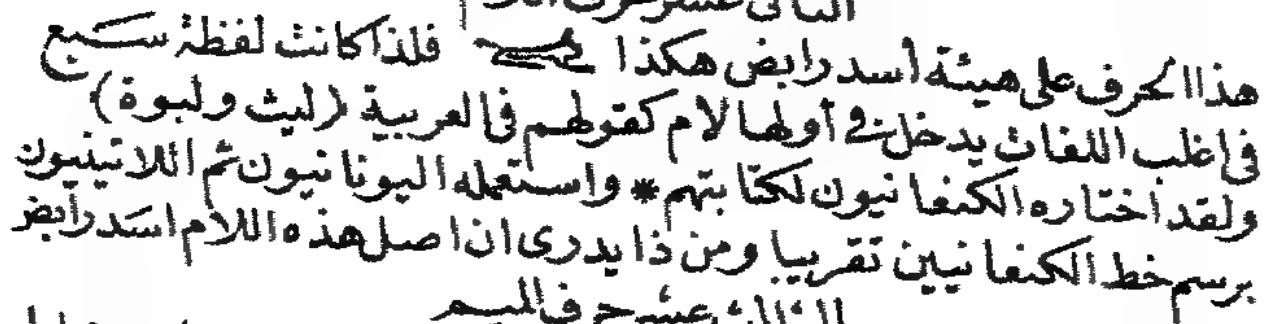 الثانى عشر حرف اللام
هذا الحرف على هيئة أسد رابض هكذا فلذا كانت لفظة سبع
فى اغلب اللغات يدخل فى أولها لام كقولهم فى العربية (ليث ولبوة)
ولقد اختاره الكنعانيون لكتابتهم * واستعمله اليونانيون ثم اللاتينيون
برسم خط الكنعانيين تقريبا ومن ذا يدرى ان اصل هذه اللام اسد رابض
الثالث عشر حرف الميم